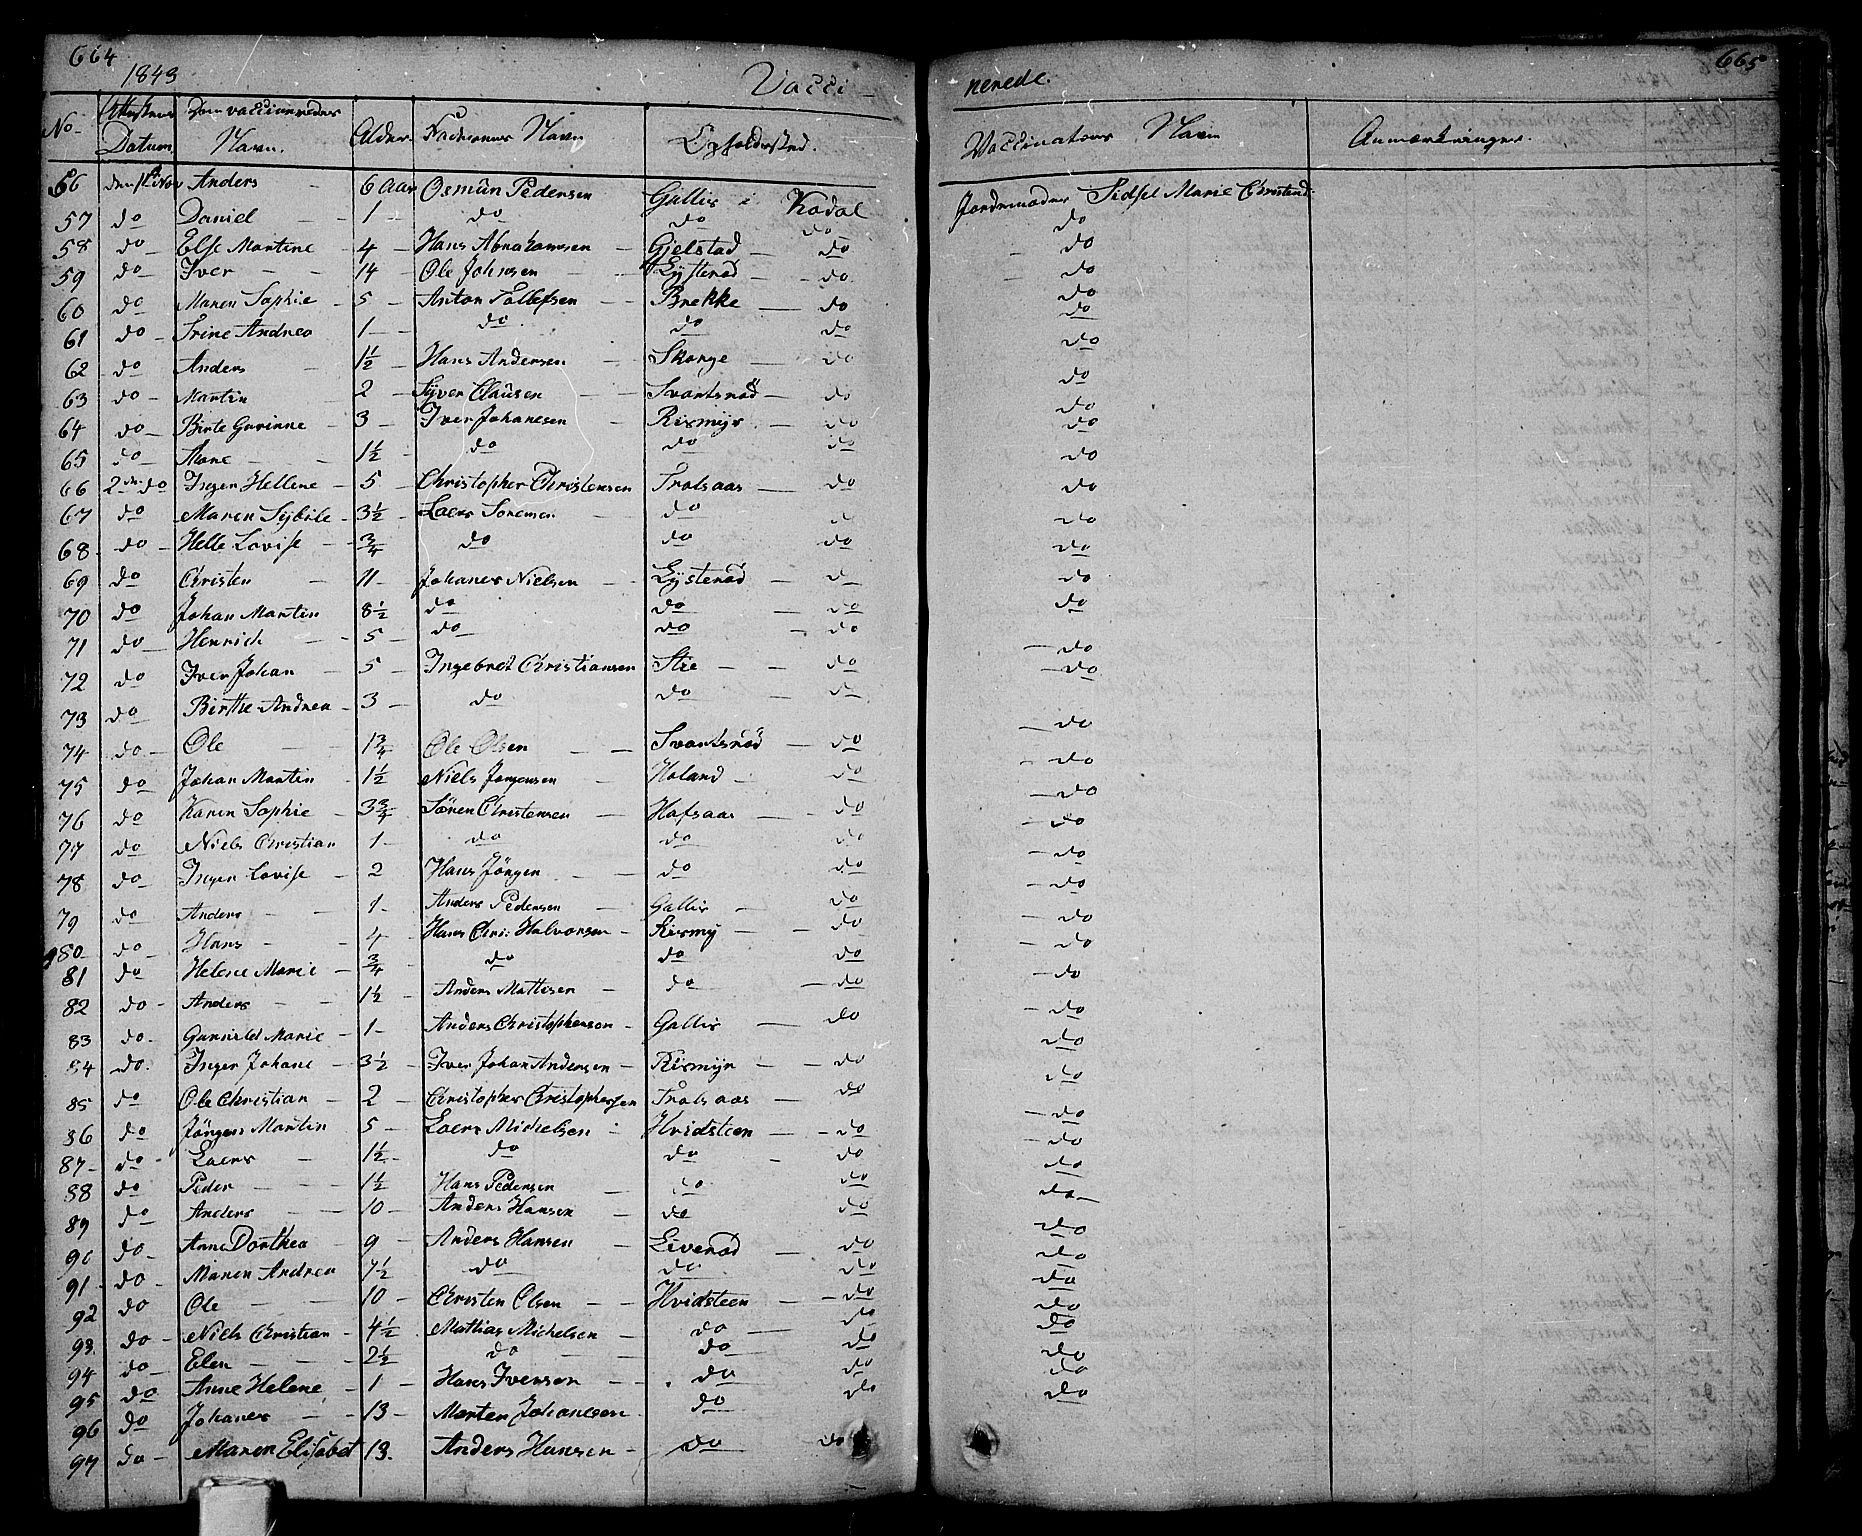 664
1843
Vacci-
No. Attesternes Datum. Den vaccineredes Navn. Alder. Faderens Navn Opholdssted.
56 den 1 Nov Anders - 6 Aar Osmün Pedersen Gallis i Kodal
57 do Daniel - 1 - do do do
58 do - Else Martine - 4 - Hans Abrahamsen - Gjelstad - do
59 do - Iver - - 14 - Ole Johnsen - Lysterød - do
60 do Maren Sophie - 5 - Anton Tollefsen - Brekke - do
61 do - Trine Andrea 1 - do do do
62 do Anders - 1½ Hans Andersen - Skorge - do
63 do - Martin 2 - Syver Claüsen - Svartsrød - do
64 do - Birte Gurinne - 3 - Iver Johanesen - Rismyr - do
65 do - Mone - - 1½ - do do do
66 2 do Inger Hellene - 5 - Christopher Christensen Trolsaas - do
67 do Maren Sybile - 3½ - Laers Sorensen - do do
68 - do - Helle Lovise - ¾ - do do do
69 do Christen - 11 - Johanes Nielsen - Lysterød - do
70 do Johan Martin 8½ do do - do
71 do - Henrich - 5 - do do - do
72 do Iver Johan - 5 - Ingebret Christiansen Stie - - do
73 do Birthe Andrea - 3 - do do - do
74 do - Ole - 1¾ Ole Olsen - - Svartsrød - do
75 do Johan Martin - 1½ Niels Jørgensen - Holand - do
76 do Karen Sophie - 3¾ Søren Christensen - Hafsaas - do
77 do Niels Christian 1 - do do do
78 do - Inger Lovise - 2 Hans Jörgen - do do
79 do Anders - 1 - Anders Pedersen - Gallis - do
80 - do - Hans - - 4 - Hans Chri: Halvorsen - Rismy - - do
81 do Helene Marie - ¾ do do do
82 do - Anders - - 1½ Anders Mattisen - do - do
83 do - Gunnild Marie - 1 - Anders Christophersen - Gallis - do
84 do. Inger Johane - 3½ - Iver Johan Andersen - Rismyr - do
85 do Ole Christian - 2 - Christopher Christophersen Trolsaas - do
86 do Jörgen Martin 5 - Laers Michelsen - Hvidsteen - do
87 - do - Laers - 1½ - do do - do
88 do Peder - - 1½ Hans Pedersen - do do
89 do Anders - - 10 - Anders Hansen - do do
90 do - Anne Dorthea - 9 - Anders Hansen - Liverød - do
91 - do - Maren Andrea 7½ do do do
92 do Ole - - 10 - Christen Olsen - - Hvidsteen - do
93. do - Niels Christian - 4½ - Mathias Michelsen - do - do
94 do - Elen - - 2½ do do do
95 do Anne Helene - 1 - Hans Iversen - do do
96 do Johanes - - 13 - Morten Johanesen do do
97 do - Maren Elisabet 13. Anders Hansen - do do
665
nerede.
Vaccinators Navn Anmærkninger.
Jordemoder Sidsel Marie Christensd:
do
do
do
do
do
do
do
do
do
do
do
do
do
do
do
- do
- do
- do
- do
- do
- do
- do
- do
- do
- do
- do
- do
do
do
- do
- do
do
do -
do
do
do
do
do
do
do
do